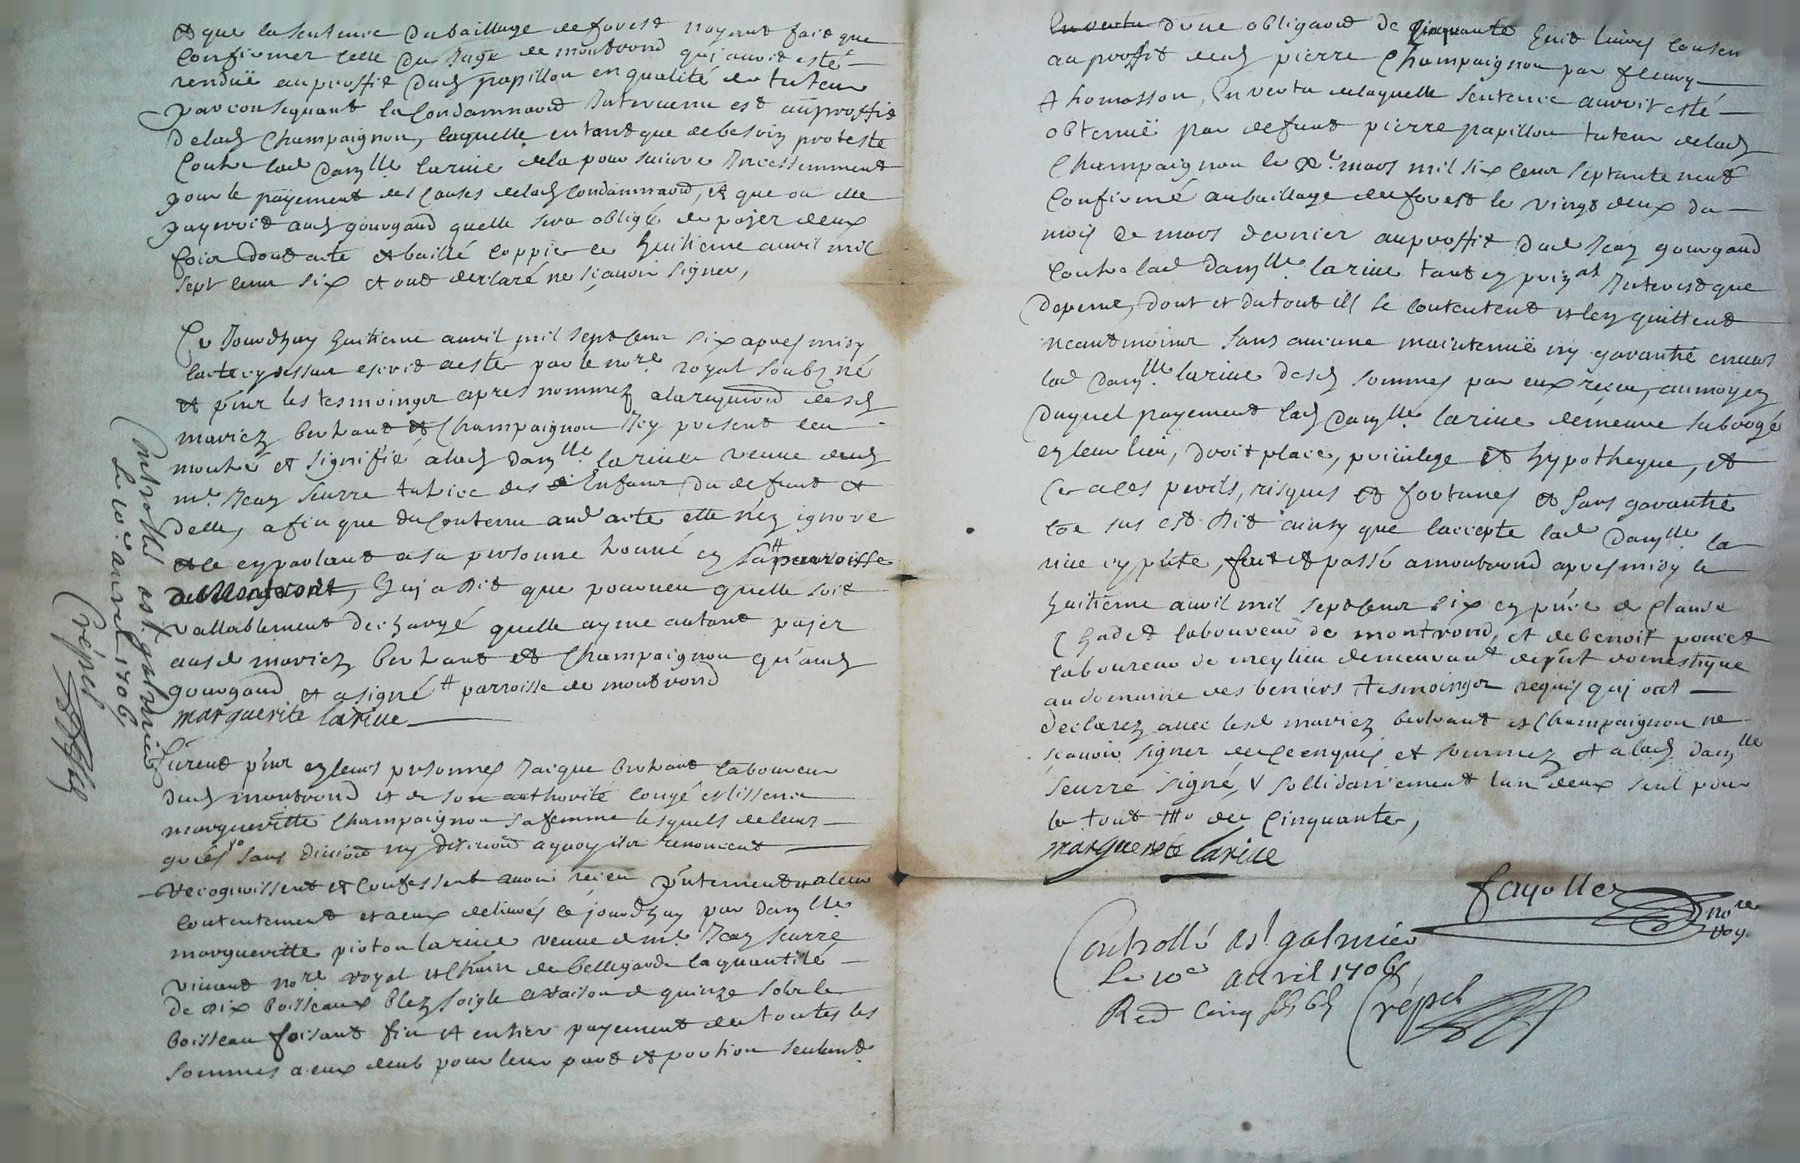 et que la sentence du baillage de forest n'ayant fait que
confirmer celle du Juge de montrond qui avoit esté
rendüe au proffit dud papillon en qualité de tuteur
par consequant la condamnaond Intervenu est au proffit
de lad Champaignon, laquelle entant que de besoin proteste
contre lad damlle larive de la poursuivre Incessemment
pour le payement des causes delad condamnaond, et que ou elle
payeroit aud gourgand quelle sera obligé de payer deux
fois dont acte et baillé coppie ce huitieme avril mil
sept cens six et ont declaré ne sçavoir signer,
Ce Jourdhuy huitieme avril mil sept cens six apres midy
lacte cy dessus escrit a esté par le nore royal soubzné
et pnt les tesmoingz apres nommez a la requond desd
mariez berthaut et Champaignon Icy present leu
montré et signifié a lad damlle larive veuve dud
mr Jean seurre tutrice des Enfans du defunt et
delle, afin que du contenu aud acte elle n'en ignore
et ce en parlant a sa personne trouvé en sa parroisse
de Montront, Qui a dit que pourveu quelle soit
vallablement dechargé quelle ayme autant payer
ausd mariez berthaut et Champaignon qu'aud
gourgand et a signé # parroisse de montrond
marguerite larive
Controllé a st galmier
le 10e avril 1706
Crépet
Furent pnt en leurs personnes Jacque berthaut laboureur
dud montrond et de son authorité congé et licence
margueritte Champaignon sa femme lesquels de leurs
grés sans division ny discution a quoy ilz renoncent
recognoissent et confessent avoir receu pntement a leur
contentement et a eux delivrés ce jourdhuy par damlle
marguerite pioton larive veuve de mr Jean seurre
vivant nore royal et chain de bellegarde la quantité
de dix boisseaux bled soigle a raison de quinze solz le
boisseau faisant fin et entier payement de toutes les
sommes a eux deub pour leur part et portion seulemt
En vertu d'une obligaond de Cinquante huit livres consen
au proffit dud pierre Champaignon par fleury
thomasson, En vertu de laquelle sentence auroit esté
obtenuë par defunt pierre papillon tuteur delad
Champaignon le xe mars mil six cens septante neuf
Confirmé au baillage de forest le vingt deux du
mois de mars dernier au proffit dud Jean gourgand
contre lad damlle larive tant en prinal Interest que
depens, dont et du tout ils se contentent et len quittent
neantmoins sans aucune maintenuë ny garantie envers
lad damlle larive desd sommes par eux receu, au moyen
duquel payement lad damlle larive demeure subrogé
en leur lieu, droit place, privilege et hypotheque, et
ce a ses perils, risques et fortunes et sans garantie
coe sus est dit ainsy que laccepte lad damlle la
rive cy pnte, fait et passé a montrond apres midy le
huitieme avril mil sept cens six en pnce de Claude
Chadet laboureur de montrond, et de benoit poncet
laboureur de meylieu demeurant depnt domestique
au domaine des beniers tesmoingz requis qui ont
declarez avec lesd mariez berthaut et Champaignon ne
sçavoir signer de ce enquis et sommez et a lad damlle
seurre signé, V sollidairement lun deux seul pour
le tout de Cinquante,
marguerite larive
fayolle
nore
roy
Controllé a st galmier
le 10e avril 1706
Red cinq s 6d Crépet